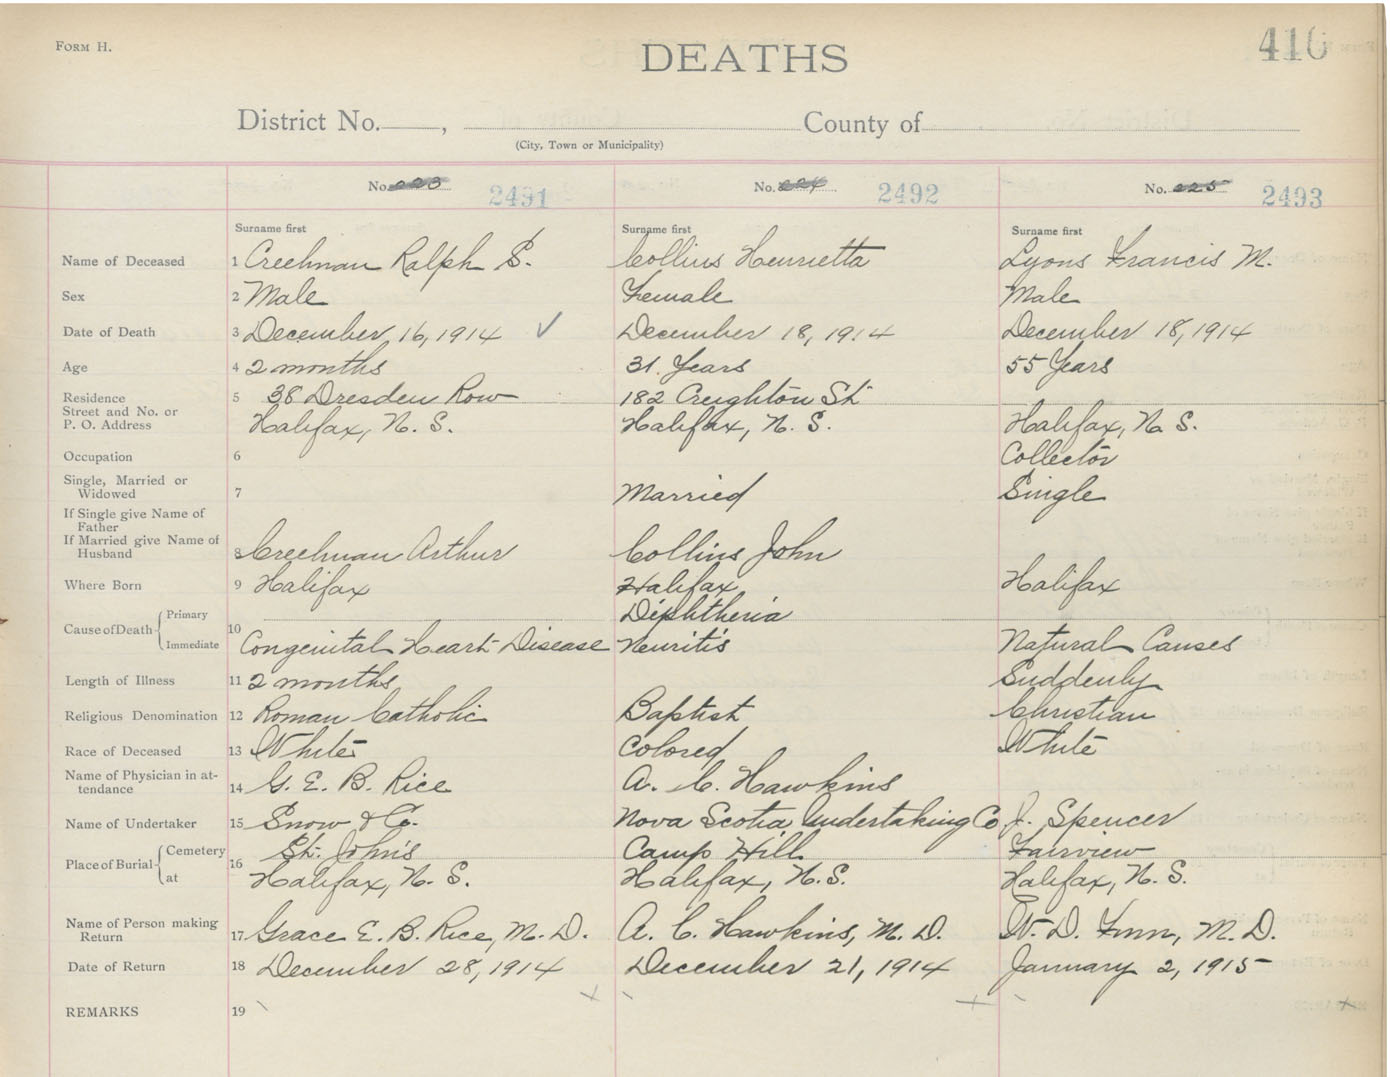 FORM H.
DEATHS
410
District No. , County of
(City, Town or Municipality)
No. 223 2491 No. 224 2492 No. 225 2493
Surname first Surname first Surname first
Name of Deceased 1 Creelman Ralph S. Collins Henrietta Lyons Francis M.
Sex 2 Male Female Male
Date of Death 3 December 16, 1914 ✓ December 18, 1914 December 18, 1914
Age 4 2 months 31 Years 55 Years
Residence 5 38 Dresden Row 182 Creighton St
Street and No. or
P. O. Address Halifax, N. S. Halifax, N. S. Halifax, N. S.
Occupation 6 Collector
Single, Married or
Widowed 7 Married Single
If Single give Name of
Father
If Married give Name of
Husband 8 Creelman Arthur Collins John
Where Born 9 Halifax Halifax Halifax
Cause of Death Primary Diphtheria
10 Immediate Congenital Heart Disease Neuritis Natural Causes
Length of Illness 11 2 months Suddenly
Religious Denomination 12 Roman Catholic Baptist Christian
Race of Deceased 13 White Colored White
Name of Physician in at-
tendance 14 G. E. B. Rice A. C. Hawkins
Name of Undertaker 15 Snow & Co. Nova Scotia Undertaking Co J. Spencer
Place of Burial Cemetery St. John's Camp Hill Fairview
16 at Halifax, N. S. Halifax, N.S. Halifax, N. S.
Name of Person making
Return 17 Grace E. B. Rice, M. D. A. C. Hawkins, M. D. W. D. Finn, M. D.
Date of Return 18 December 28, 1914 December 21, 1914 January 2, 1915
REMARKS 19